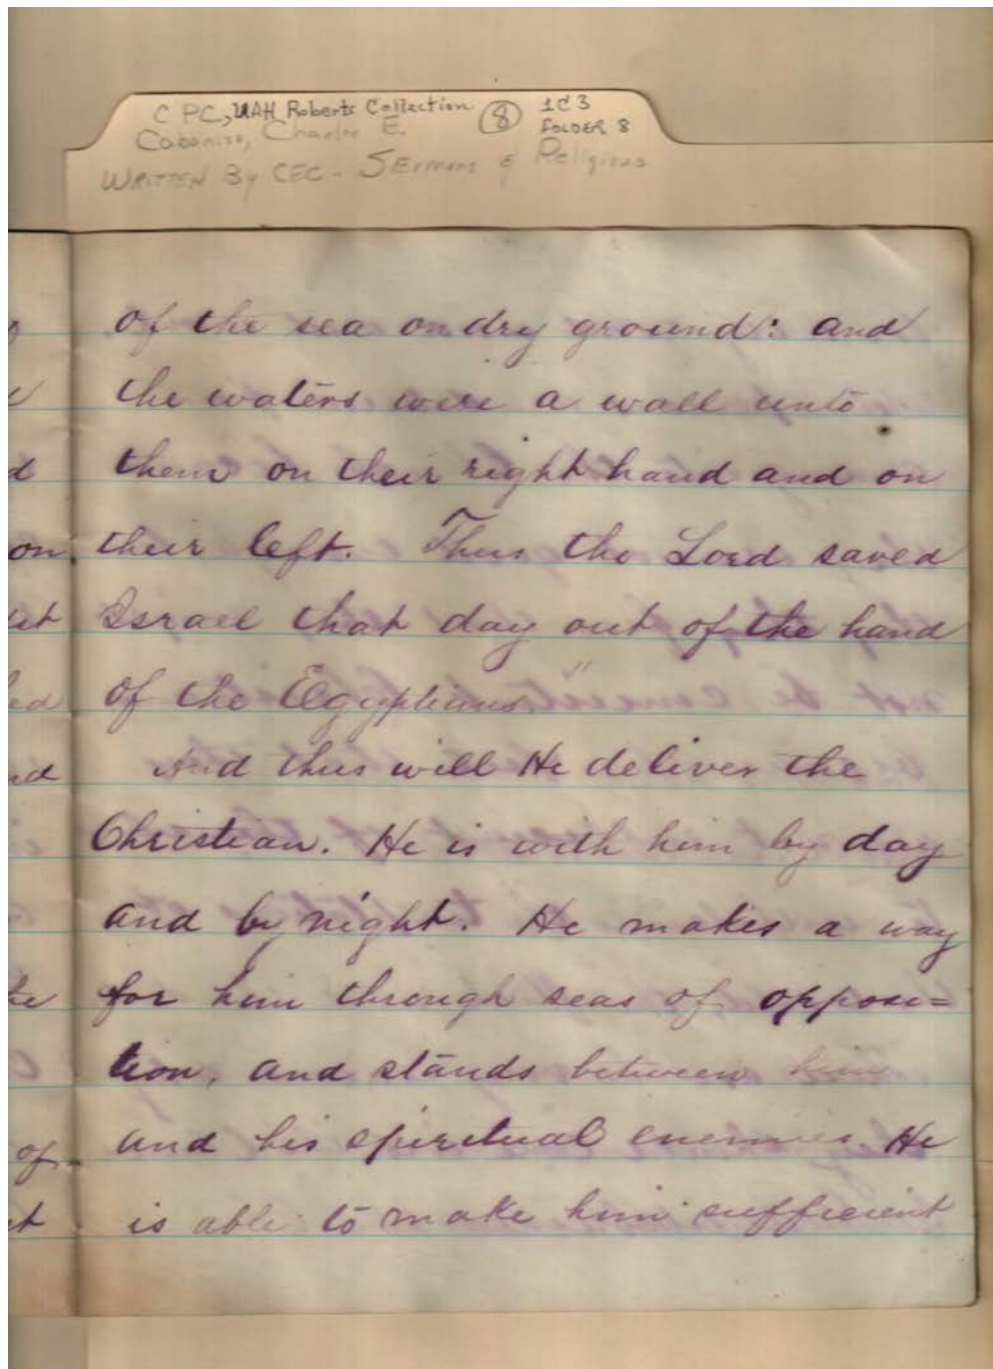 C PC, UAH Roberts Collection 8 1C3
Cabaniss, Charles E. FOLDER 8
WRITTEN By CEC - SErmons & Religious
of the sea on dry ground: and
the waters were a wall unto
them on their right hand and on
on their left. Thus the Lord saved
Israel that day out of the hand
of the Egyptians."
And thus will He deliver the
Christian. He is with him by day
and by night. He makes a way
for him through seas of opposi=
tion, and stands between him
and his spiritual enemies. He
of
is able to make him sufficient